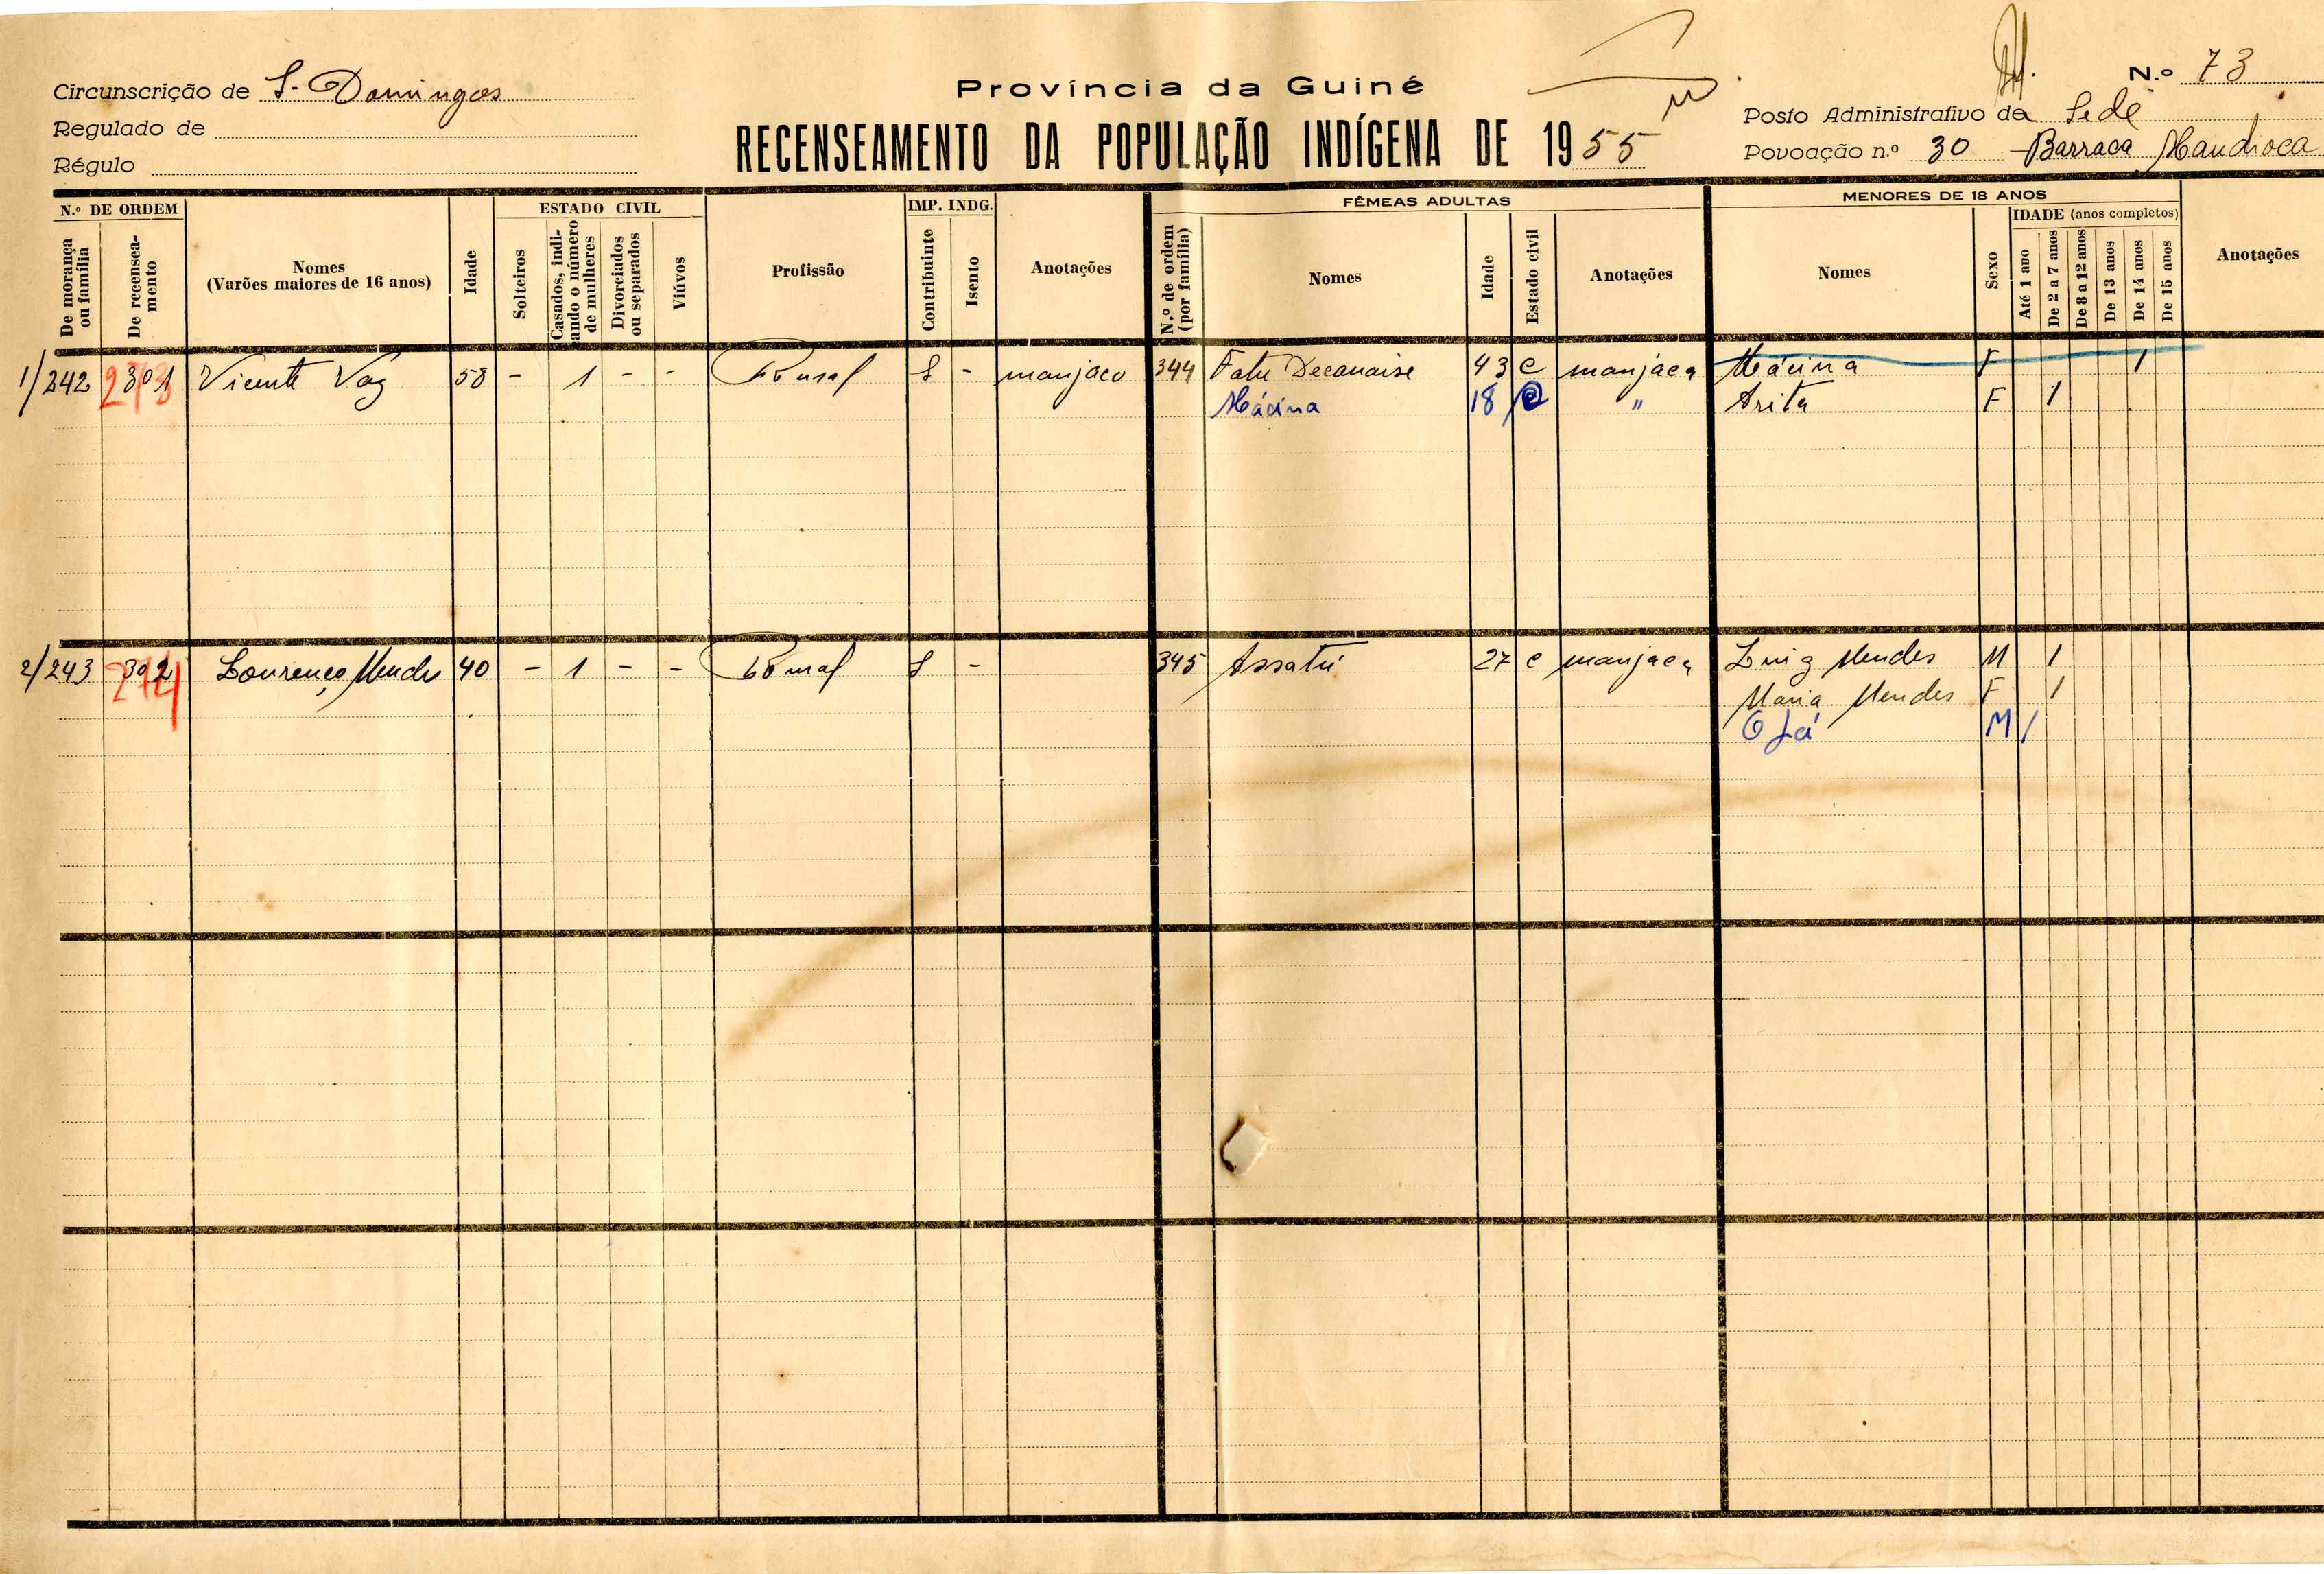 N.º 73
Circunscrição de S. Domingos
Província da Guiné
Posto Administrativo da Sede
Regulado de
RECENSEAMENTO DA POPULAÇÃO INDÍGENA DE 1955
Povoação n.º 30 Barraca Mandioca
Régulo
N.º DE ORDEM
De morança ou família
De recenseamento
Nomes
(Varões maiores de 16 anos)
Idade
ESTADO CIVIL
Solteiros
Casados, indicando o número de mulheres
Divorciados ou separados
Viúvos
Profissão
IMP. INDG.
Contribuinte
Isento
Anotações
FÊMEAS ADULTAS
N.º de ordem (por família)
Nomes
Idade
Estado civil
Anotações
MENORES DE 18 ANOS
Nomes
Sexo
IDADE (anos completos)
Até 1 ano
De 2 a 7 anos
De 8 a 12 anos
De 13 anos
De 14 anos
De 15 anos
Anotações
1/242 301 273 Vicente Vaz 58 - 1 - - - manjaco 344 Fatu 43 C manjaca Mácina F 1
Mácina 18 " Arita F 1
2/243 302 274 Lourenço Mendes 40 - 1 - - - 345 Assatú 27 C manjaca Luiz Mendes M 1
Maria Mendes F 1
M /